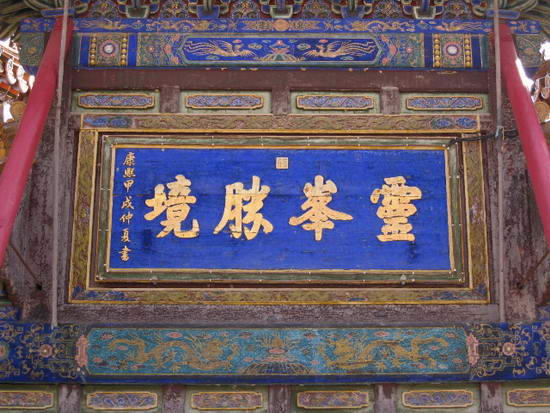 靈峯勝境
康熙甲戌仲夏書